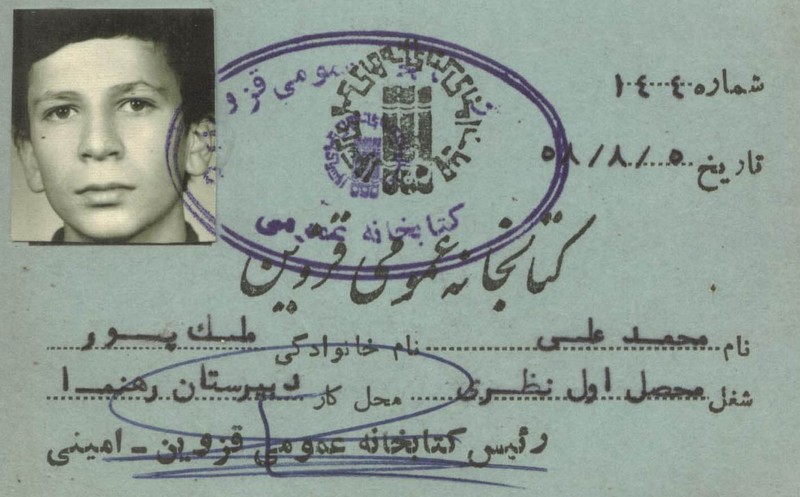 شماره ۱۰۴۰۴
تاریخ ۵۸/۸/۵
کتابخانه عمومی قزوین
کتابخانه عمومی
عمومی قزو
نام محمد علی نام خانوادگی ملک پور
شغل محصل اول نظری محل کار دبیرستان رهنما
رئیس کتابخانه عمومی قزوین - امینی